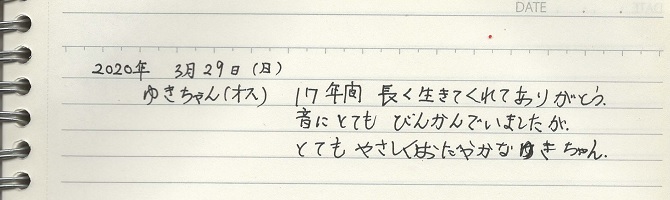 DATE
2020年 3月29日(日)
ゆきちゃん(オス) 17年間 長く生きてくれてありがとう.
音にとても びんかんでいましたが.
とても やさしくおだやかな ゆきちゃん.